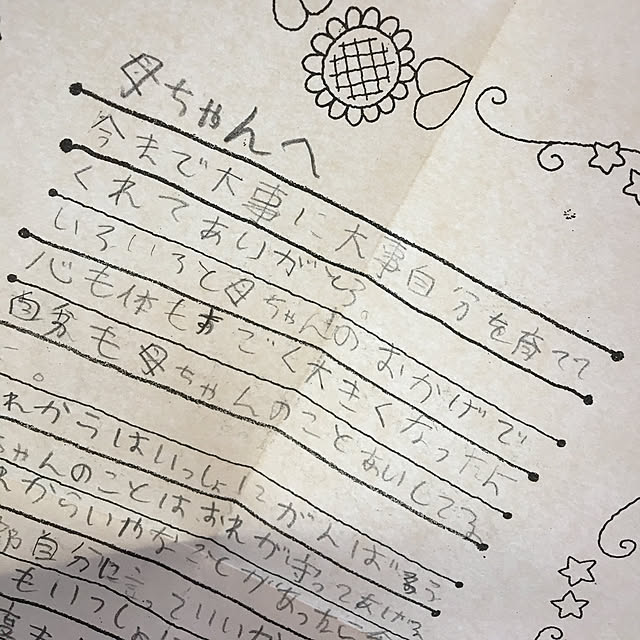 母ちゃんへ
今まで大事に大事自分を育てて
くれてありがとう。
いろいろと母ちゃんのおかげで
心も体もすごく大きくなったよ
自分も母ちゃんのことあいしてる
。
れからはいっしょにがんばろう
ちゃんのことはおれが守ってあげる
からいやなことがあったら
部自分に言っていいか
もいっしょに